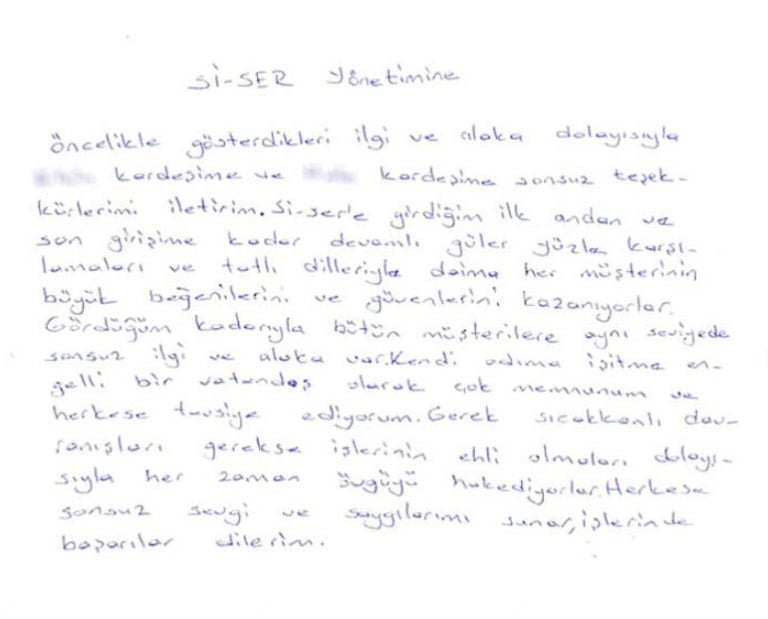 Sİ-SER Yönetimine
öncelikle gösterdikleri ilgi ve alaka dolayısıyla
kardeşime ve kardeşime sonsuz teşek-
kürlerimi iletirim. Si-ser'e girdiğim ilk andan ve
son girişime kadar devamlı güler yüzle karşı-
lamaları ve tatlı dilleriyle daima her müşterinin
büyük beğenilerini ve güvenlerini kazanıyorlar.
Gördüğüm kadarıyla bütün müşterilere aynı seviyede
sonsuz ilgi ve alaka var.Kendi adıma işitme en-
gelli bir vatandaş olarak çok memnunum ve
herkese tavsiye ediyorum. Gerek sıcakkanlı dav-
ranışları gerekse işlerinin ehli olmaları dolayı-
sıyla her zaman övgüyü hakediyorlar.Herkese
sonsuz sevgi ve saygılarımı sunar, işlerinde
başarılar dilerim.